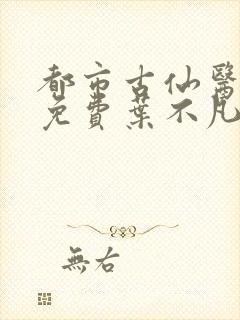 都市古仙醫
免費葉不凡
無右